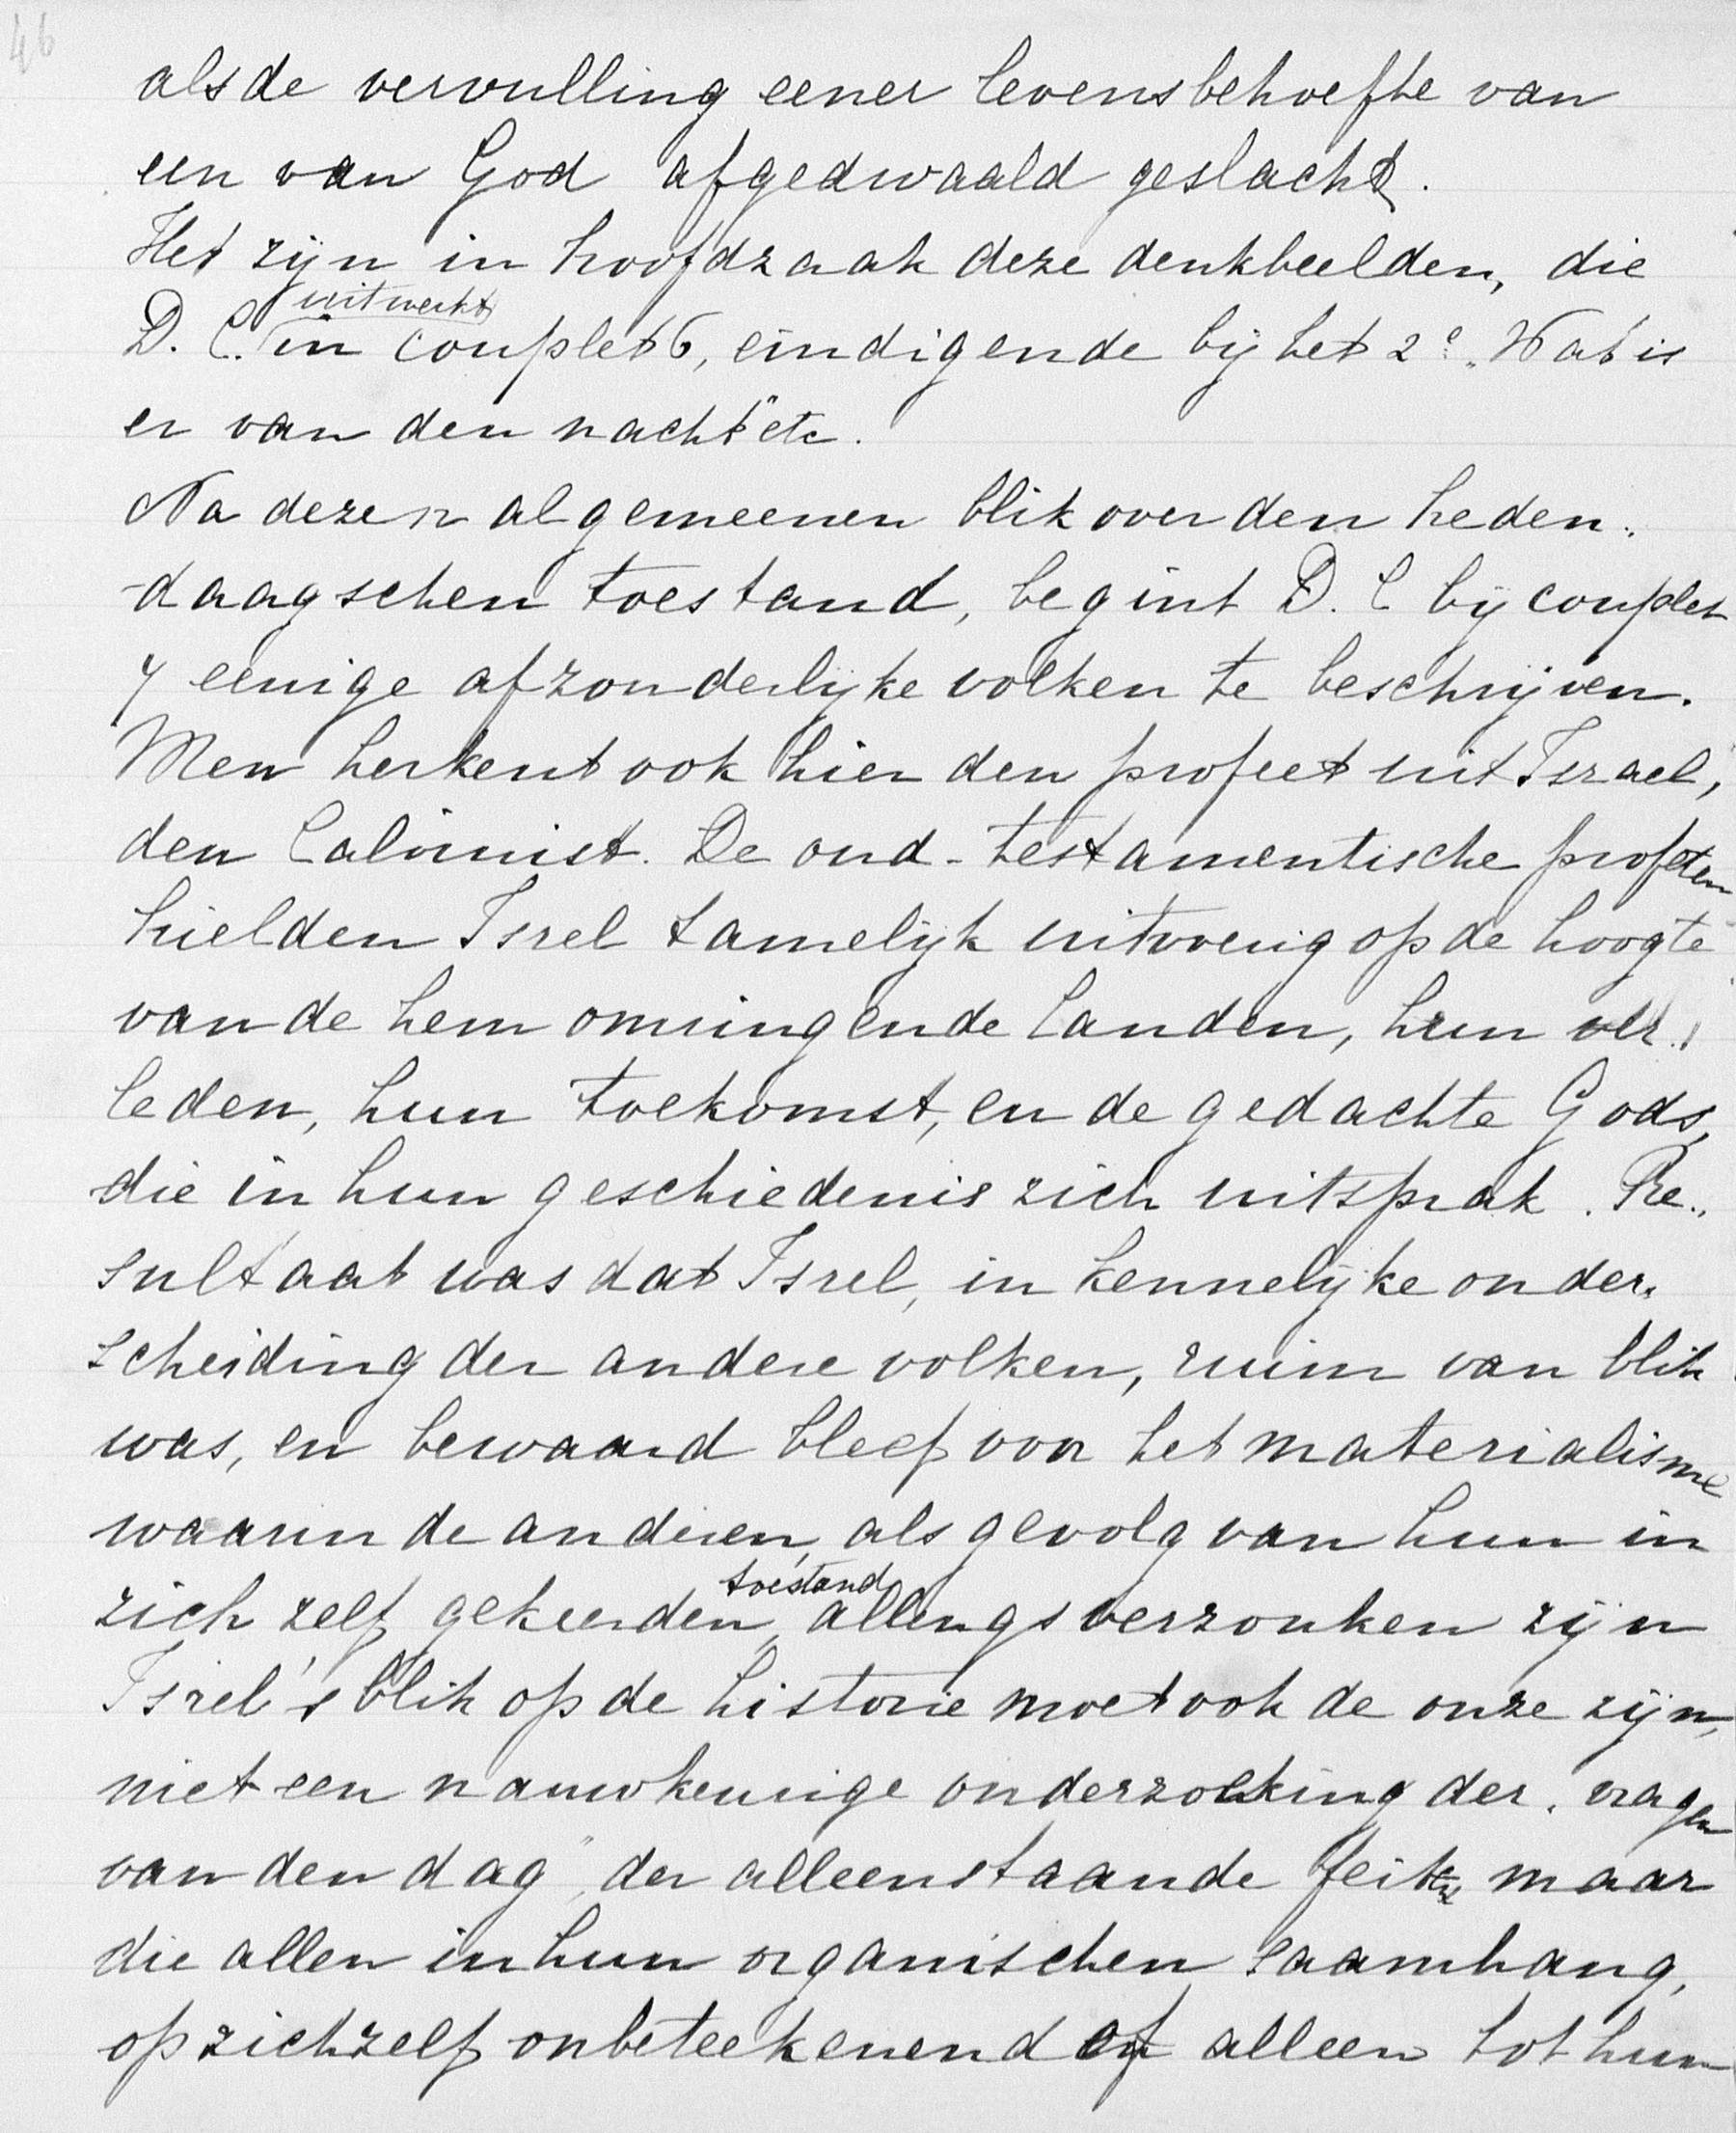 46
als de vervulling eener levensbehoefte van
een van God afgedwaald geslacht.
Het zijn in hoofdzaak deze denkbeelden, die
uitwerkt
D. C. in couplet 6, eindigende bij het 2e „Wat is
er van den nacht" etc.
Na dezen algemeenen blik over den heden-
-daagschen toestand, begint D. C bij couplet
7 eenige afzonderlijke volken te beschrijven.
Men herkent ook hier den profeet uit Israel,
den Calvinist. De oud-testamentische profeten
hielden Isrel tamelijk uitvoerig op de hoogte
van de hem omringende landen, hun ver-
leden, hun toekomst, en de gedachte Gods,
die in hun geschiedenis zich uitsprak. Re-
sultaat was dat Isrel, in kennelijke onder-
scheiding der andere volken, ruim van blik
was, en bewaard bleef voor het materialisme
waarin de anderen, als gevolg van hun in
toestand
zich zelf gekeerden, allengs verzonken zijn
Isrel's blik op de historie moet ook de onze zijn,
niet een nauwkeurige onderzoeking der „vragen
van den dag", der alleenstaande feiten maar
die allen in hun organischen saamhang,
op zichzelf onbeteekenend of alleen tot hun